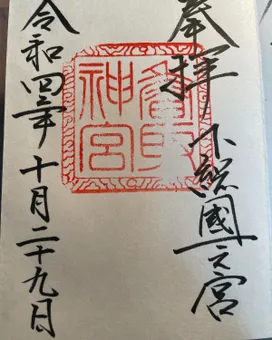 奉拝
下総國一之宮
香取神宮
令和四年十月二十九日